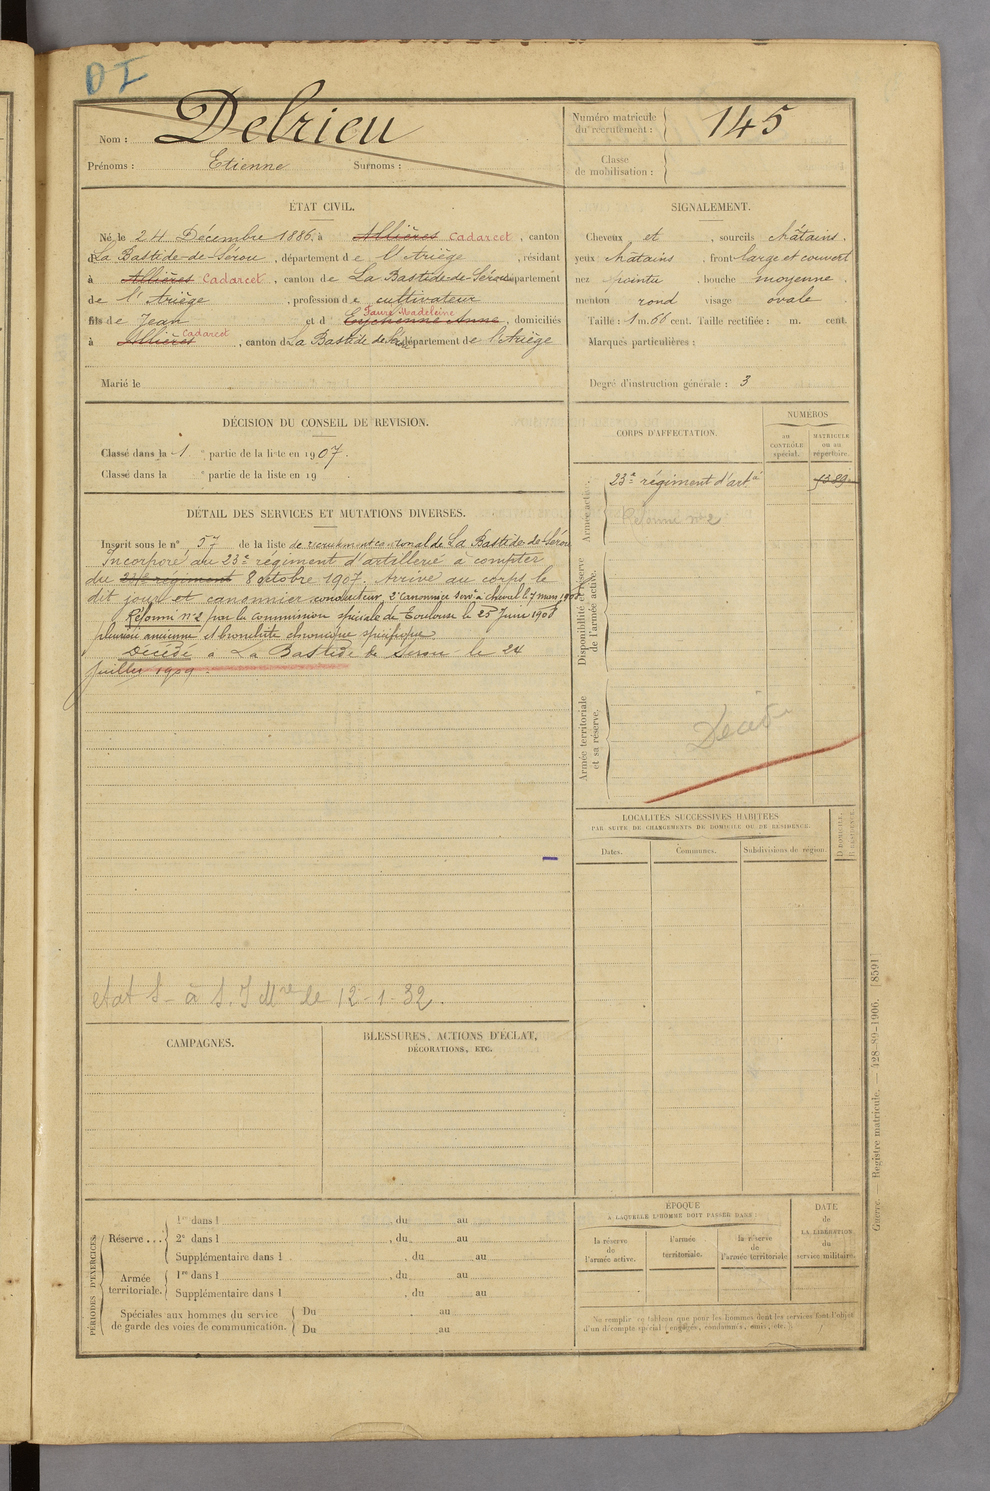 DI
Nom : Delrieu
Prénoms : Etienne Surnoms :
Numéro matricule du recrutement : 145
Classe de mobilisation :
ÉTAT CIVIL.
Né, le 24 Décembre 1886, à Allières Cadarcet, canton
de La Bastide-de-Sérou, département de l'Ariège, résidant
à Allières Cadarcet, canton de La Bastide-de-Sérou, département
de l'Ariège, profession de cultivateur
Faure Madeleine
fils de Jean et d Eychenne Anne, domiciliés
à Allières Cadarcet, canton de La Bastide de Sérou, département de l'Ariège
Marié le
SIGNALEMENT.
Cheveux et , sourcils châtains,
yeux châtains, front large et couvert
nez pointu, bouche moyenne,
menton rond visage ovale
Taille : 1 m. 66 cent. Taille rectifiée : m. cent.
Marques particulières :
Degré d'instruction générale : 3
DÉCISION DU CONSEIL DE REVISION.
Classé dans la 1 e partie de la liste en 1907.
Classé dans la e partie de la liste en 19 .
DÉTAIL DES SERVICES ET MUTATIONS DIVERSES.
Inscrit sous le n° 57 de la liste de recrutement cantonal de La Bastide-de-Sérou
Incorporé au 23e régiment d'artillerie à compter
du 23e régiment 8 octobre 1907. Arrivé au corps le
dit jour et canonnier conducteur, 2e canonnier servt à cheval le 7 mars 1908
Réformé n°2 par la commission spéciale de Toulouse le 25 Juin 1908
pleurésie ancienne et bronchite chronique spécifique
Décédé à La Bastide de Sérou le 24
Juillet 1909.
etat S- à S. I Mre le 12-1-32.
CORPS D'AFFECTATION.
NUMÉROS
AU CONTRÔLE spécial.
MATRICULE ou au répertoire.
Armée active.
23e régiment d'artie
1389
Réformé n°2
Disponibilité et réserve de l'armée active.
Armée territoriale et sa réserve.
Décédé
LOCALITÉS SUCCESSIVES HABITÉES
PAR SUITE DE CHANGEMENTS DE DOMICILE OU DE RÉSIDENCE.
Dates. Communes. Subdivisions de région. D DOMICILE, R RÉSIDENCE.
CAMPAGNES.
BLESSURES, ACTIONS D'ÉCLAT,
DÉCORATIONS, ETC.
PÉRIODES D'EXERCICES.
Réserve ...
1re dans l , du au
2e dans l , du au
Supplémentaire dans l , du au
Armée territoriale.
1re dans l , du au
Supplémentaire dans l , du au
Spéciales aux hommes du service
de garde des voies de communication.
Du au
Du au
ÉPOQUE
À LAQUELLE L'HOMME DOIT PASSER DANS :
la réserve de l'armée active.
l'armée territoriale.
la réserve de l'armée territoriale
DATE
de
LA LIBÉRATION
du
service militaire.
Ne remplir ce tableau que pour les hommes dont les services font l'objet
d'un décompte spécial (engagés, condamnés, omis, etc.).
Guerre. — Registre matricule. — 428-89-1906. [8591]